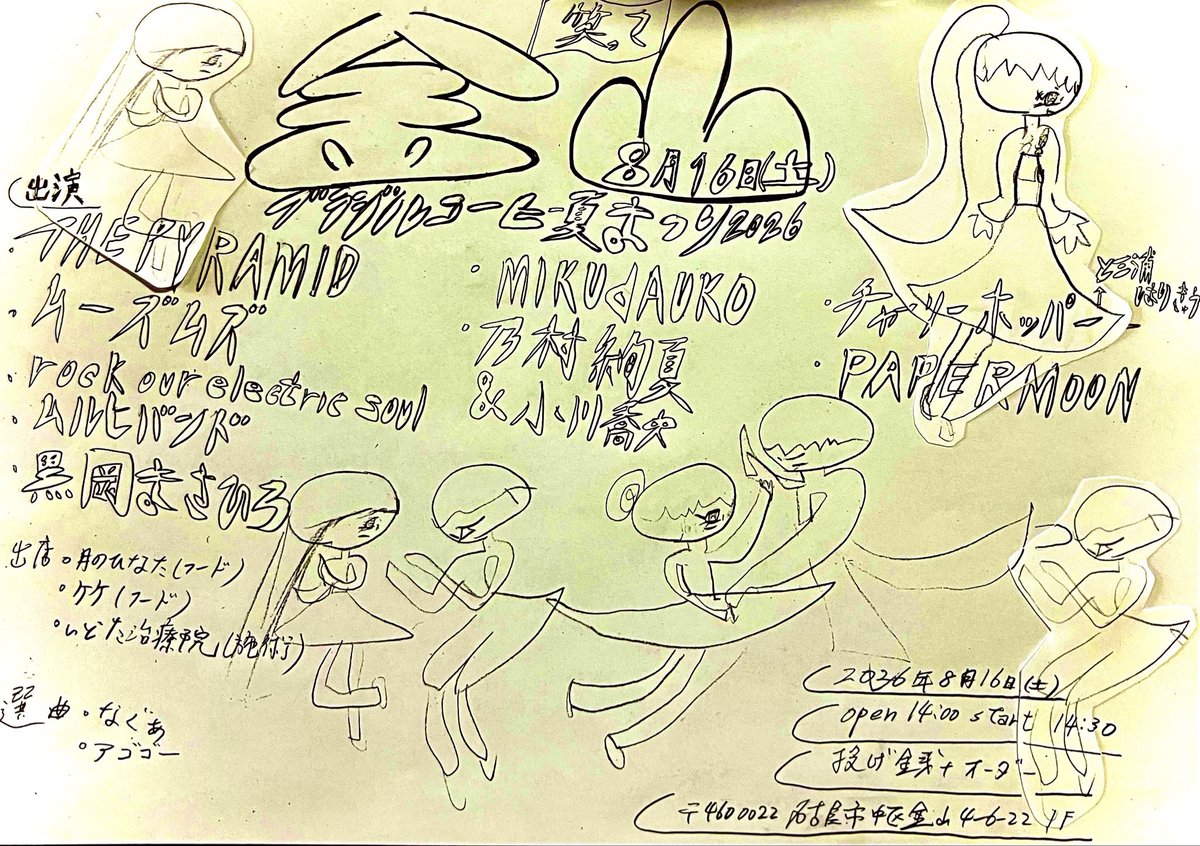 笑って
金山
8月16日(土)
ブラジルコーヒー夏まつり2026
(出演
・THE PYRAMID
・ムーズムズ
・rock our electric soul
・ムルヒバンド
・黒岡まさひろ
・MIKUdAUKO
・乃村絢夏
&小川喬央
・チャーリーホッパー
↑
と三浦
はりきゅう
・PAPERMOON
出店。月のひなた(フード)
。ケケ(フード)
。いどた治療院(施術)
選曲。なぐぁ
。アゴゴー
2026年8月16(土)
open 14:00 start 14:30
投げ銭+オーダー
〒4600022 名古屋市中区金山4-6-22 1F